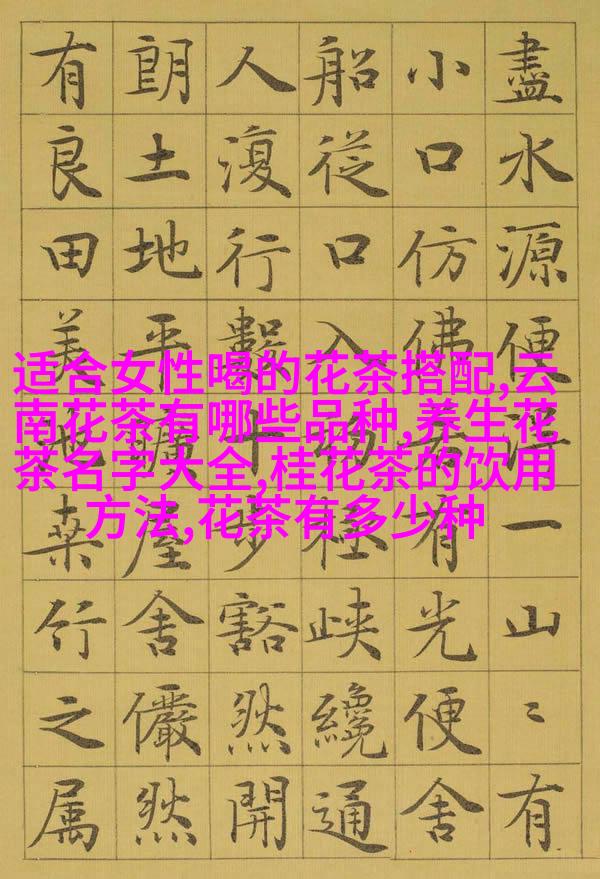 盡水源便得一山〻有
小口仿佛若有光便舍
船從口入初極峽纔通
人復行數十步豁然開
朗土地平曠屋舍儼然
有良田美池桒竹之属
适合女性喝的花茶搭配,云
南花茶有哪些品种,养生花
茶名字大全,桂花茶的饮用
方法,花茶有多少种